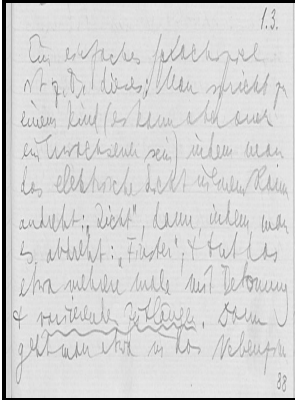 1.3.
Ein einfaches Sprachspiel
ist z.B. dieses: Man spricht zu
einem Kind (es kann aber auch
ein Erwachsener sein) indem man
das elektrische Licht in einem Raum
andreht: „Licht“, dann, indem man
es abdreht: „Finster“; & tut das
etwa mehrere Male mit Betonung
& variierenden Zeitlängen. Dann
geht man etwa in das Nebenzim
88